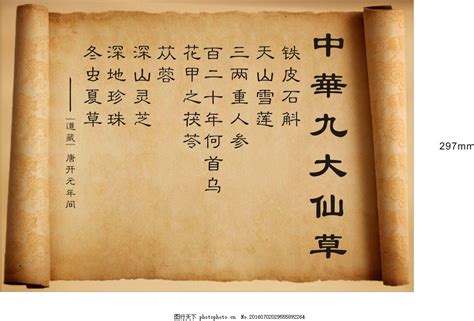 中華九大仙草
铁皮石斛
天山雪莲
三两重人参
百二十年何首乌
花甲之茯苓
苁蓉
深山灵芝
深地珍珠
冬虫夏草
——[道藏] 唐开元年间
297mm
图行天下 photophoto.cn No.20160702029555892264